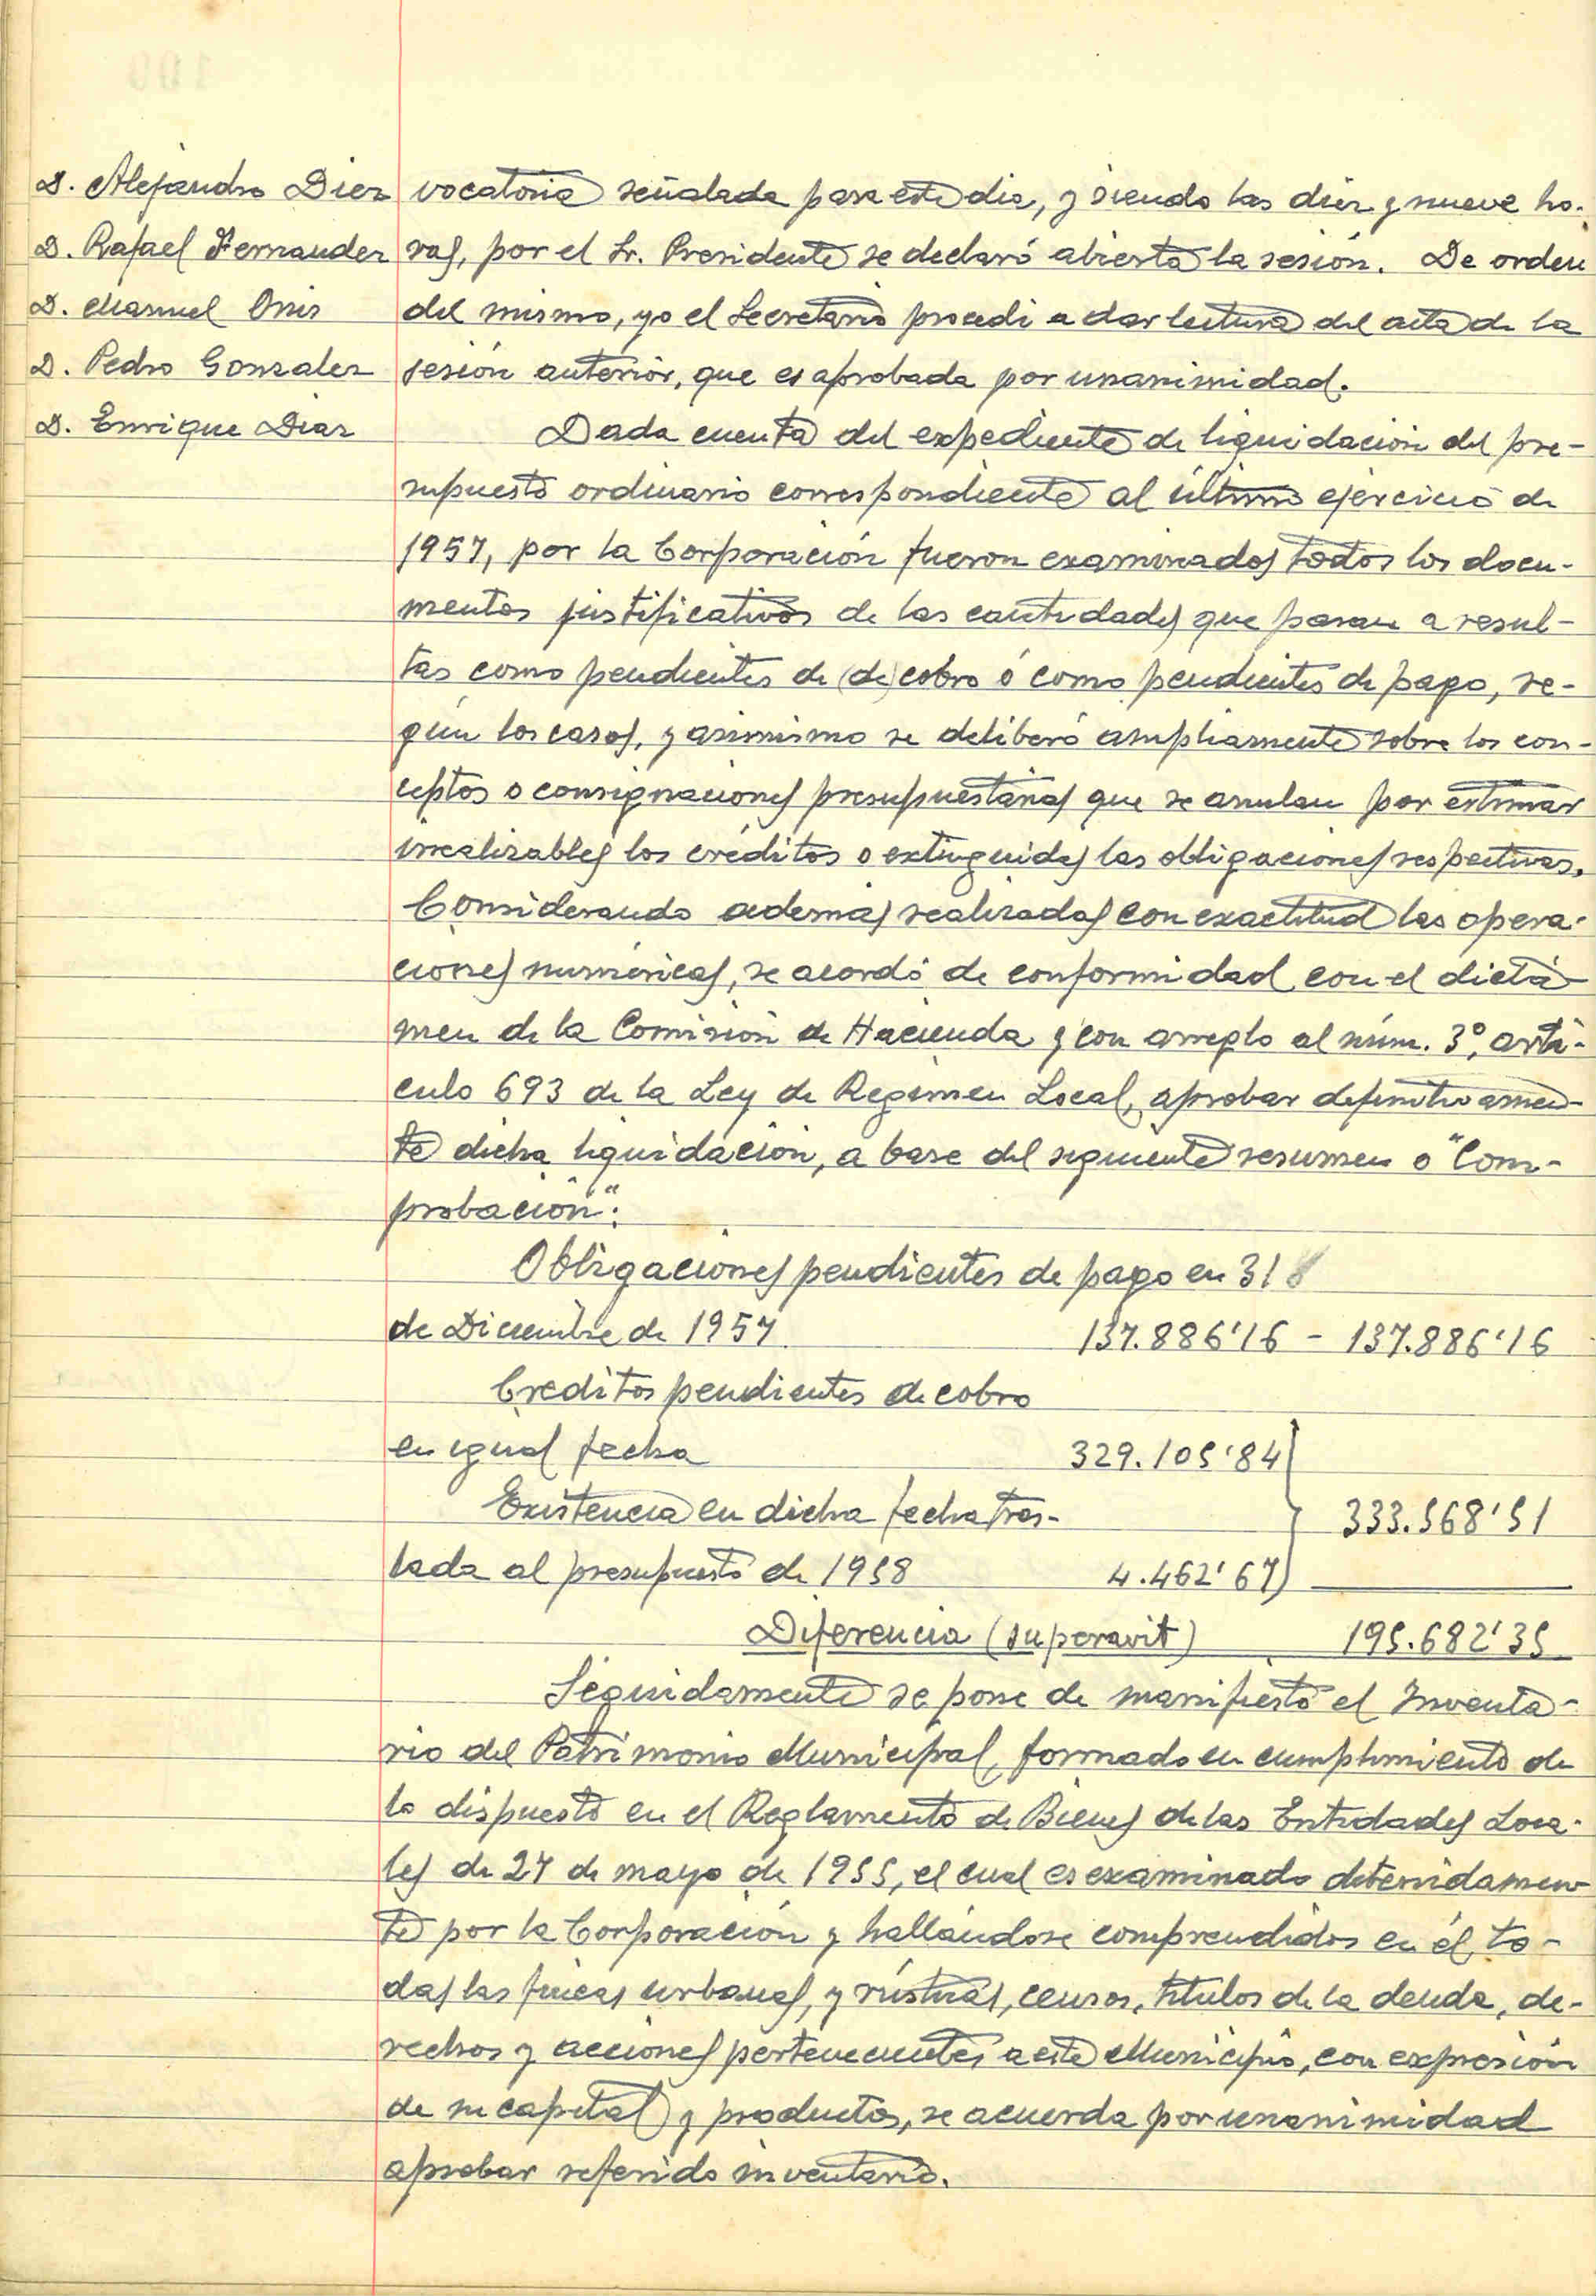 D. Alejandro Diez
D. Rafael Fernandez
D. Manuel Onis
D. Pedro Gonzalez
D. Enrique Diaz
vocatoria señalada para este dia, y siendo las diez y nueve ho-
ras, por el Sr. Presidente se declaró abierta la sesión. De orden
del mismo, yo el Secretario procedi a dar lectura del acta de la
sesión anterior, que es aprobada por unanimidad.
Dada cuenta del expediente de liquidación del pre-
supuesto ordinario correspondiente al último ejercicio de
1957, por la Corporación fueron examinados todos los docu-
mentos justificativos de las cantidades que pasan a resul-
tas como pendientes de (de) cobro ó como pendientes de pago, se-
gún los casos, y asimismo se deliberó ampliamente sobre los con-
ceptos o consignaciones presupuestarias que se anulan por estimar
irrealizables los créditos o extinguidas las obligaciones respectivas.
Considerando además realizadas con exactitud las opera-
ciones numéricas, se acordó de conformidad con el dictá-
men de la Comisión de Hacienda y con arreglo al núm. 3º, artí-
culo 693 de la Ley de Regimen Local, aprobar definitivamen-
te dicha liquidación, a base del siguiente resumen o "Com-
probación":
Obligaciones pendientes de pago en 31
de Diciembre de 1957 137.886'16 - 137.886'16
Creditos pendientes de cobro
en igual fecha 329.105'84
Existencia en dicha fecha tras-
lada al presupuesto de 1958 4.462'67 333.568'51
Diferencia (superavit) 195.682'35
Seguidamente se pone de manifiesto el Inventa-
rio del Patrimonio Municipal, formado en cumplimiento de
lo dispuesto en el Reglamento de Bienes de las Entidades Loca-
les de 27 de mayo de 1955, el cual es examinado detenidamen-
te por la Corporación y hallándose comprendidos en él, to-
das las fincas urbanas, y rústicas, censos, títulos de la deuda, de-
rechos y acciones pertenecientes a este Municipio, con expresión
de su capital y productos, se acuerda por unanimidad
aprobar referido inventario.